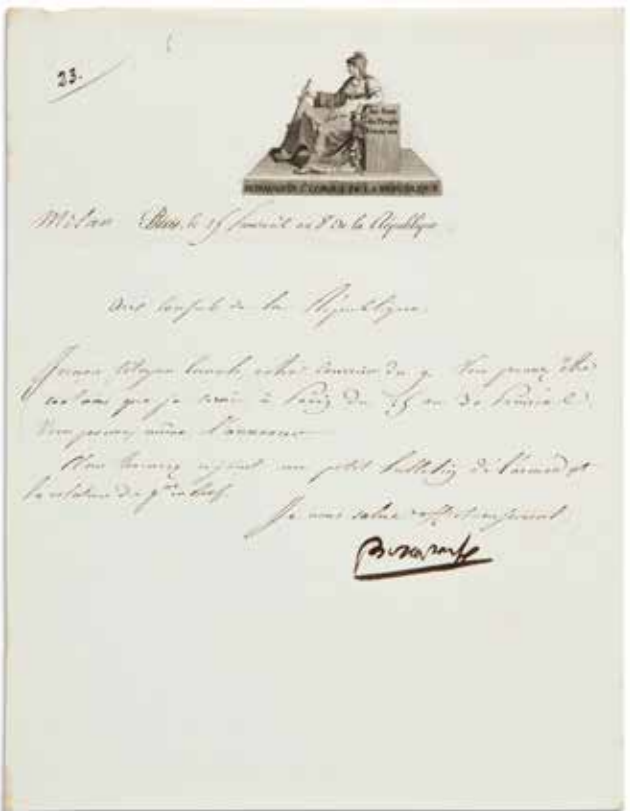 23.
Au Nom
du Peuple
Français
BONAPARTE, 1.er CONSUL DE LA RÉPUBLIQUE
Milan le 15 prairial an 8 de la République
Aux Consuls de la République
Je reçois, Citoyens Consuls, votre courrier du 9. Vous pouvez être
certains que je serai à Paris du 25 au 30 prairial.
Vous pouvez même l'annoncer.
Vous trouverez ci joint un petit bulletin de l'armée et
la relation du
Je vous salue affectueusement
Bonaparte